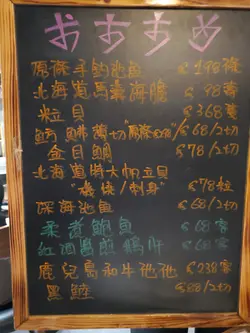 おすすめ
原條手釣池魚 $198條
北海道馬糞海膽 $98客
粒貝 $368客
鮪 薄切 /$68/2切
金目鯛 $78/2切
北海道特大帆立貝
"燒/刺身" $78粒
深海池魚 $68/2切
柔煮鮑魚 $68客
紅酒鵝肝 $68客
鹿兒島和牛他他 $238客
黑鮱 $88/2切